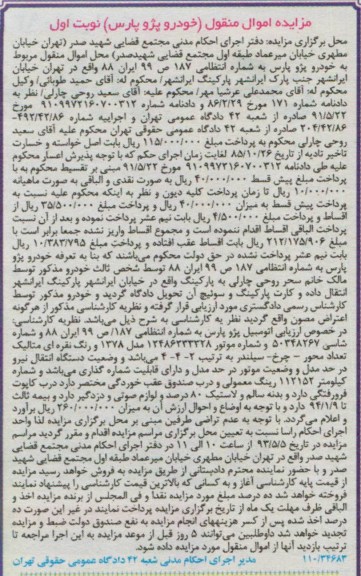 مزایده اموال منقول (خودرو پژو پارس) نوبت اول
محل برگزاری مزایده: دفتر اجرای احکام مدنی مجتمع قضایی شهید صدر (تهران خیابان
مطهری خیابان میرعماد طبقه اول مجتمع قضایی شهیدصدر) محل اموال منقول مربوط
به خودرو پژو پارس به شماره انتظامی ۱۸۷ ص ۹۹ ایران ۸۸ واقع در تهران خیابان
ایرانشهر جنب پارک ایرانشهر پارکینگ ایرانشهر/ محکوم له: آقای حمید طوبائی/ وکیل
محکوم له: آقای محمدعلی عرشیا مهر/ محکوم علیه: آقای سعید روحی چارلی/ نظر به
دادنامه شماره ۱۷۱ مورخ ۸۶/۲/۲۹ و دادنامه شماره ۹۱۰۹۹۷۲۱۶۰۷۰۰۳۱۲ مورخ
۹۱/۵/۲۲ صادره از شعبه ۴۲ دادگاه عمومی تهران و اجراییه شماره ۴۹۲/۴۲/۸۶-
۲۰۴/۴۲/۸۶ صادره از شعبه ۴۲ دادگاه عمومی حقوقی تهران محکوم علیه آقای سعید
روحی چارلی به محکوم به پرداخت مبلغ ۱۱۵/۰۰۰/۰۰۰ ریال بابت اصل خواسته و خسارت
تاخیر تادیه از تاریخ ۸۵/۱۰/۲۶ لغایت زمان اجرای حکم که با توجه پذیرش اعسار محکوم
علیه طی دادنامه ۹۱۰۹۹۷۲۱۶۰۷۰۰۳۱۲ مورخ ۹۱/۵/۲۲ مبنی بر تقسیط محکوم به با
پرداخت مبلغ پیش قسط ۴۰/۰۰۰/۰۰۰ ریال به صورت نقدی و الباقی به صورت ماهیانه
۱۰/۰۰۰/۰۰۰ ریال تا زمان پرداخت کلیه دیون و نظر به اینکه محکوم علیه نسبت به
پرداخت پیش قسط به میزان ۴۰/۰۰۰/۰۰۰ ریال و پرداخت مبلغ ۳۵/۵۰۰/۰۰۰ ریال از
اقساط و پرداخت مبلغ ۴/۵۰۰/۰۰۰ ریال بابت نیم عشر پرداخت نموده و بعد از آن نسبت
پرداخت الباقی اقساط اقدام ننموده است و مجموع اقساط واریز نشده جمعا برابر است با
مبلغ ۲۱۲/۱۷۵/۹۰۶ ریال بابت اقساط عقب افتاده و پرداخت مبلغ ۱۰/۳۸۳/۷۹۵ ریال
بابت نیم عشر پرداخت نشده در حق دولت محکوم می‌باشند که بنا به تعرفه خودرو پژو
پارس به شماره انتظامی ۱۸۷ ص ۹۹ ایران ۸۸ توسط شخص ثالث خودرو مذکور توسط
مالک خانم سحر روحی چارلی به پارکینگ واقع در خیابان ایرانشهر پارکینگ ایرانشهر
انتقال داده و کارت پارکینگ و سوئیچ آن تحویل دادگاه گردید و خودرو مذکور توسط
کارشناس رسمی دادگستری مورد ارزیابی قرار گرفته و نظریه کارشناسی مذکور از هرگونه
اعتراض مصون واقع گردید نظر به کارشناسی به شرح ذیل می‌باشد. نظر به کارشناسی:
در خصوص ارزیابی اتومبیل پژو پارس به شماره انتظامی ۱۸۷/ص ۹۹ ایران ۸۸ و شماره
شاسی ۵۰۳۴۸۲۶۷ و شماره موتور ۱۲۴۸۶۳۳۳۲۸ مدل ۱۳۷۸ و رنگ نقره ای متالیک
تعداد محور - چرخ- سیلندر به ترتیب ۲- ۴- ۴ می‌باشد و وضعیت دستگاه انتقال نیرو
در حد مدل و وضعیت موتور در حد مدل و دارای قابلیت شماره گذاری می‌باشد و شماره
کیلومتر ۱۱۲۱۵۲ رینگ معمولی و درب صندوق عقب خوردگی مختصر دارد درب کاپوت
فرورفتگی دارد و بدنه سالم و لاستیک ۸۰ درصد و لوازم صوتی و دزدگیر دارد و بیمه ثالث
تا ۹۴/۱/۹ دارد و با توجه به اوضاع و احوال ارزش آن به میزان ۲۶۰/۰۰۰/۰۰۰ ریال برآورد
و اعلام می‌گردد. با توجه به عدم تراضی طرفین مبنی بر محل برگزاری مزایده لذا واحد
اجرای احکام راسا نسبت به تعیین محل برگزاری مراسم مزایده اقدام و مقرر گردید مراسم
مزایده در تاریخ ۹۳/۵/۵ از ساعت ۱۰ الی ۱۱ در دفتر اجرای احکام مدنی مجتمع قضایی
شهید صدر واقع در تهران خیابان مطهری خیابان میرعماد طبقه اول مجتمع قضایی شهید
صدر و با حضور نماینده محترم دادستانی از طریق مزایده به فروش خواهد رسید مزایده
از قیمت پایه کارشناسی آغاز و به کسانی که بالاترین قیمت کارشناسی را پیشنهاد نمایند
فروخته خواهد شد ده درصد مبلغ مورد مزایده نقدا و فی المجلس از برنده مزایده اخذ و
الباقی ظرف مهلت یک ماه از تاریخ برگزاری مزایده پرداخت نمایند در غیر این صورت ده
درصد اخذ شده پس از کسر هزینه‎های انجام مزایده به نفع صندوق دولت ضبط و مزایده
تجدید خواهد شد داوطلبین می‌توانند ۵ روز قبل از موعد مزایده به این اجرا مراجعه تا
ترتیب بازدید آنها از اموال منقول مورد مزایده داده شود.
۱۱۰/۳۴۶۸۳ مدیر اجرای احکام مدنی شعبه ۴۲ دادگاه عمومی حقوقی تهران